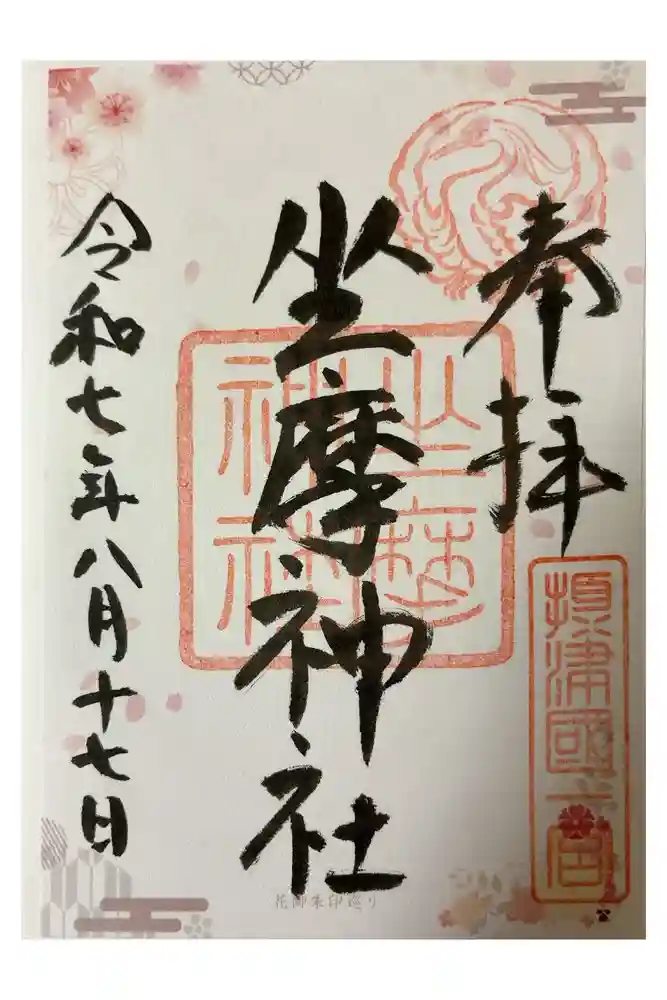 奉拝
摂津國一宮
坐摩神社
坐摩
神社
令和七年八月十七日
花御朱印巡り